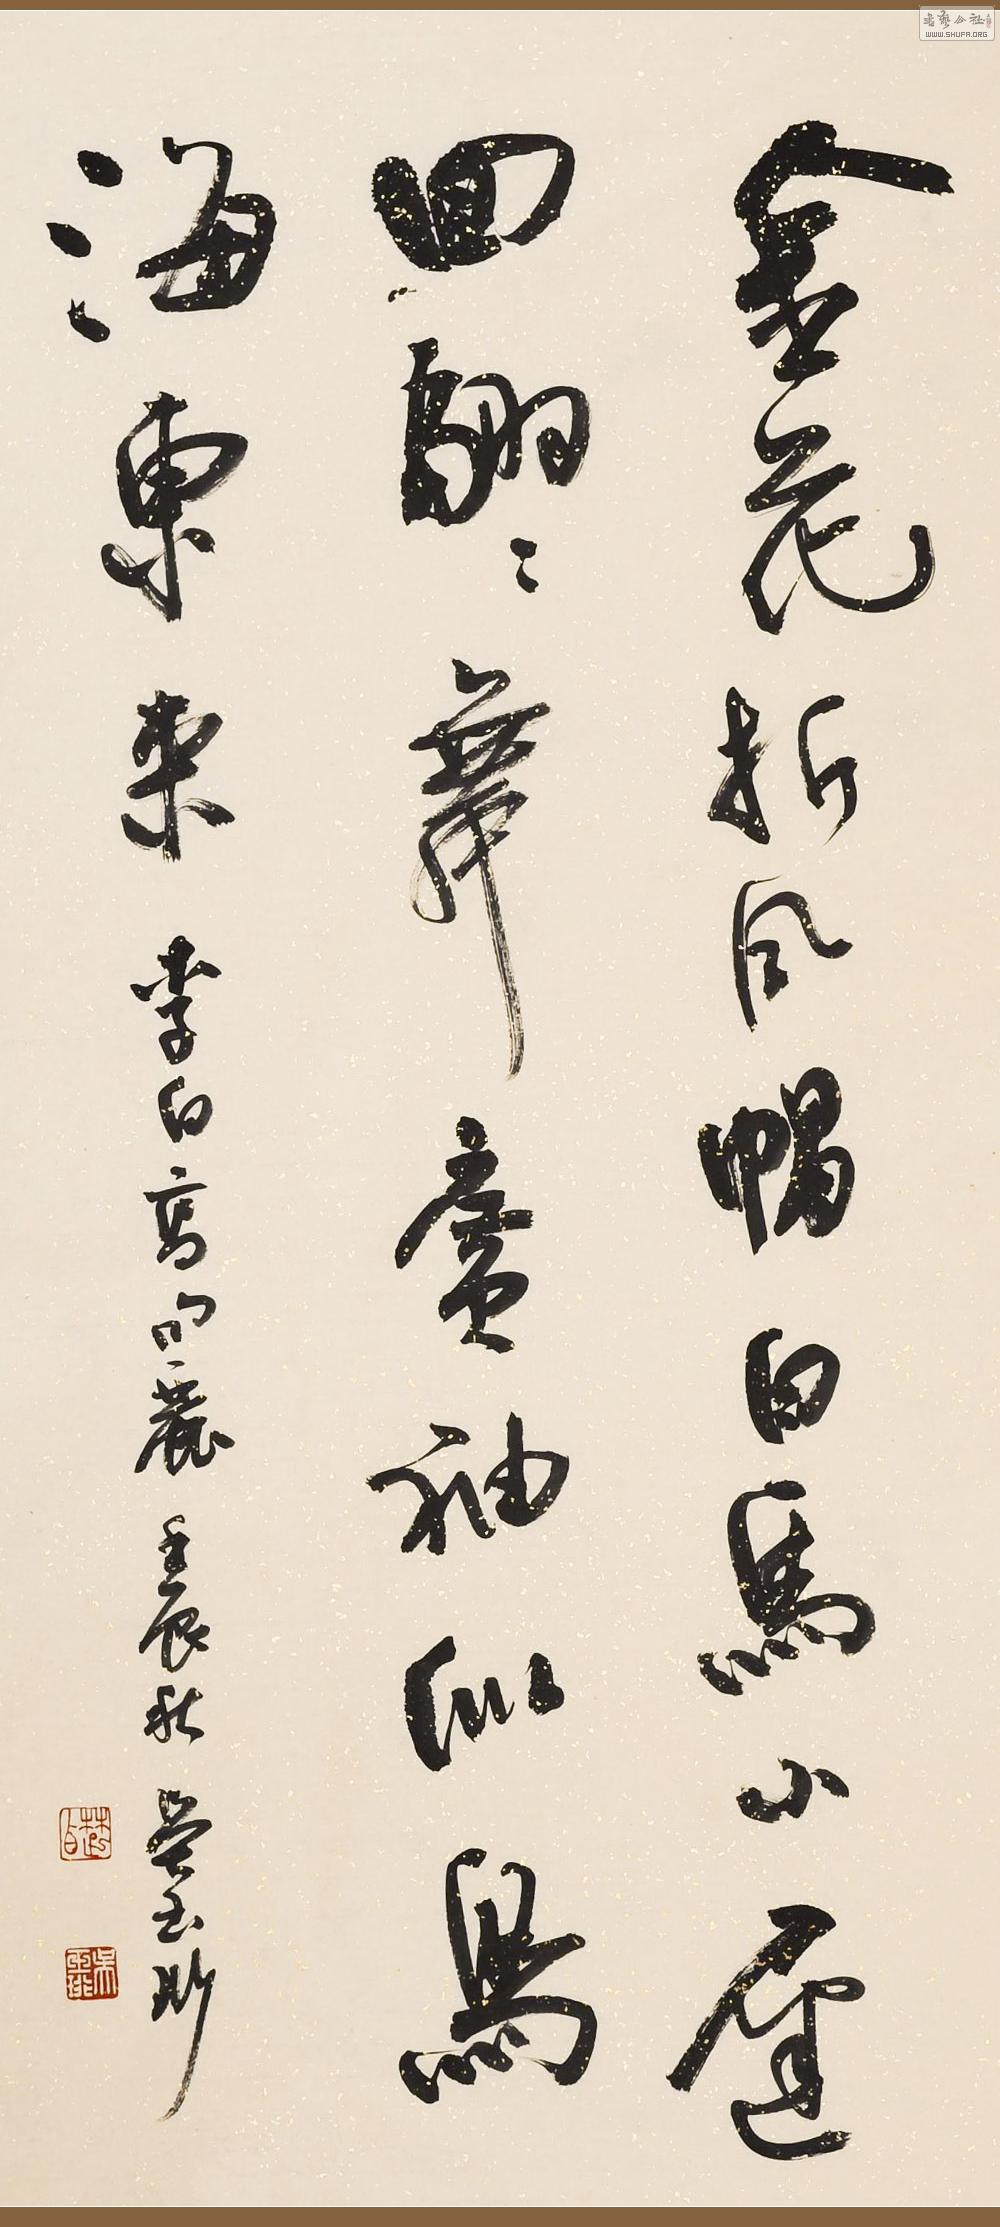 金花折風帽白馬小遲
回翩〻舞廣袖似鳥
海東來 李白高句麗 壬辰秋 吳玉
書藝公社
WWW.SHUFA.ORG